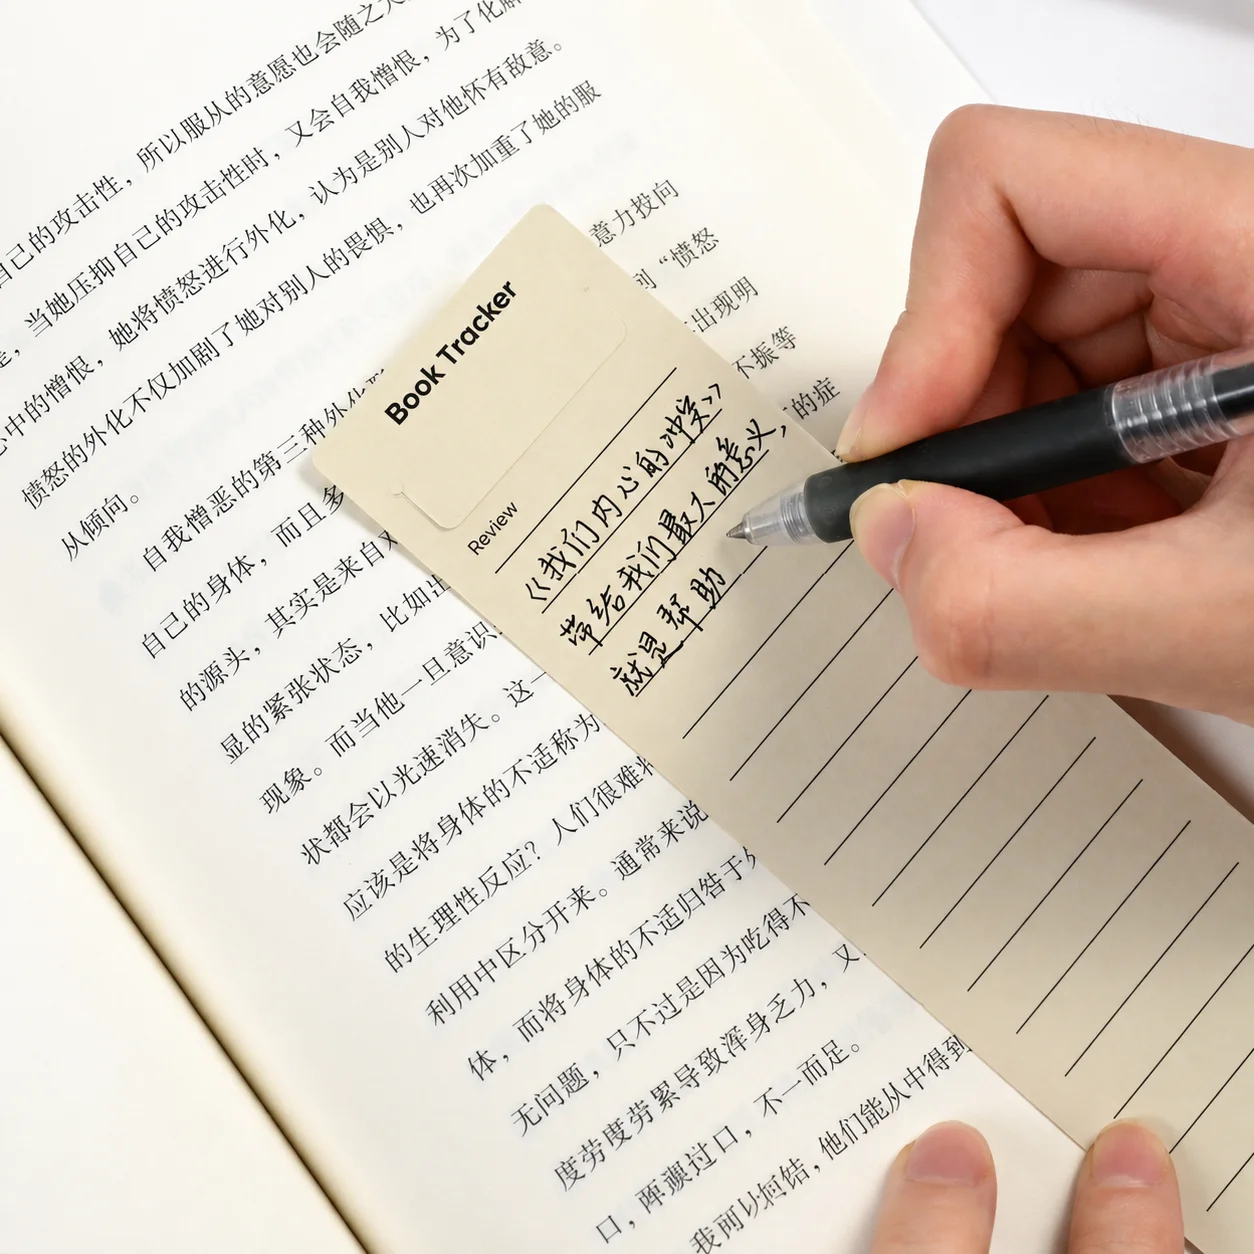 自己的攻击性，所以服从的意愿也会随之
，当她压抑自己的攻击性时，又会自我憎恨，为了化解
心中的憎恨，她将愤怒进行外化，认为是别人对他怀有敌意。
愤怒的外化不仅加剧了她对别人的畏惧，也再次加重了她的服
从倾向。
自我憎恶的第三种外化
意力投向
自己的身体，而且多
到“愤怒
的源头，其实是来自
出现明
显的紧张状态，比如出
不振等
现象。而当他一旦意识
的症
状都会以光速消失。这一
应该是将身体的不适称为
的生理性反应？人们很难将
利用中区分开来。通常来说
体，而将身体的不适归咎于外
无问题，只不过是因为吃得不
度劳度劳累导致浑身乏力，又
口，不一而足。
他们能从中得到
Book Tracker
Review
《我们内心的冲突》
带给我们最大的意义，
就是帮助